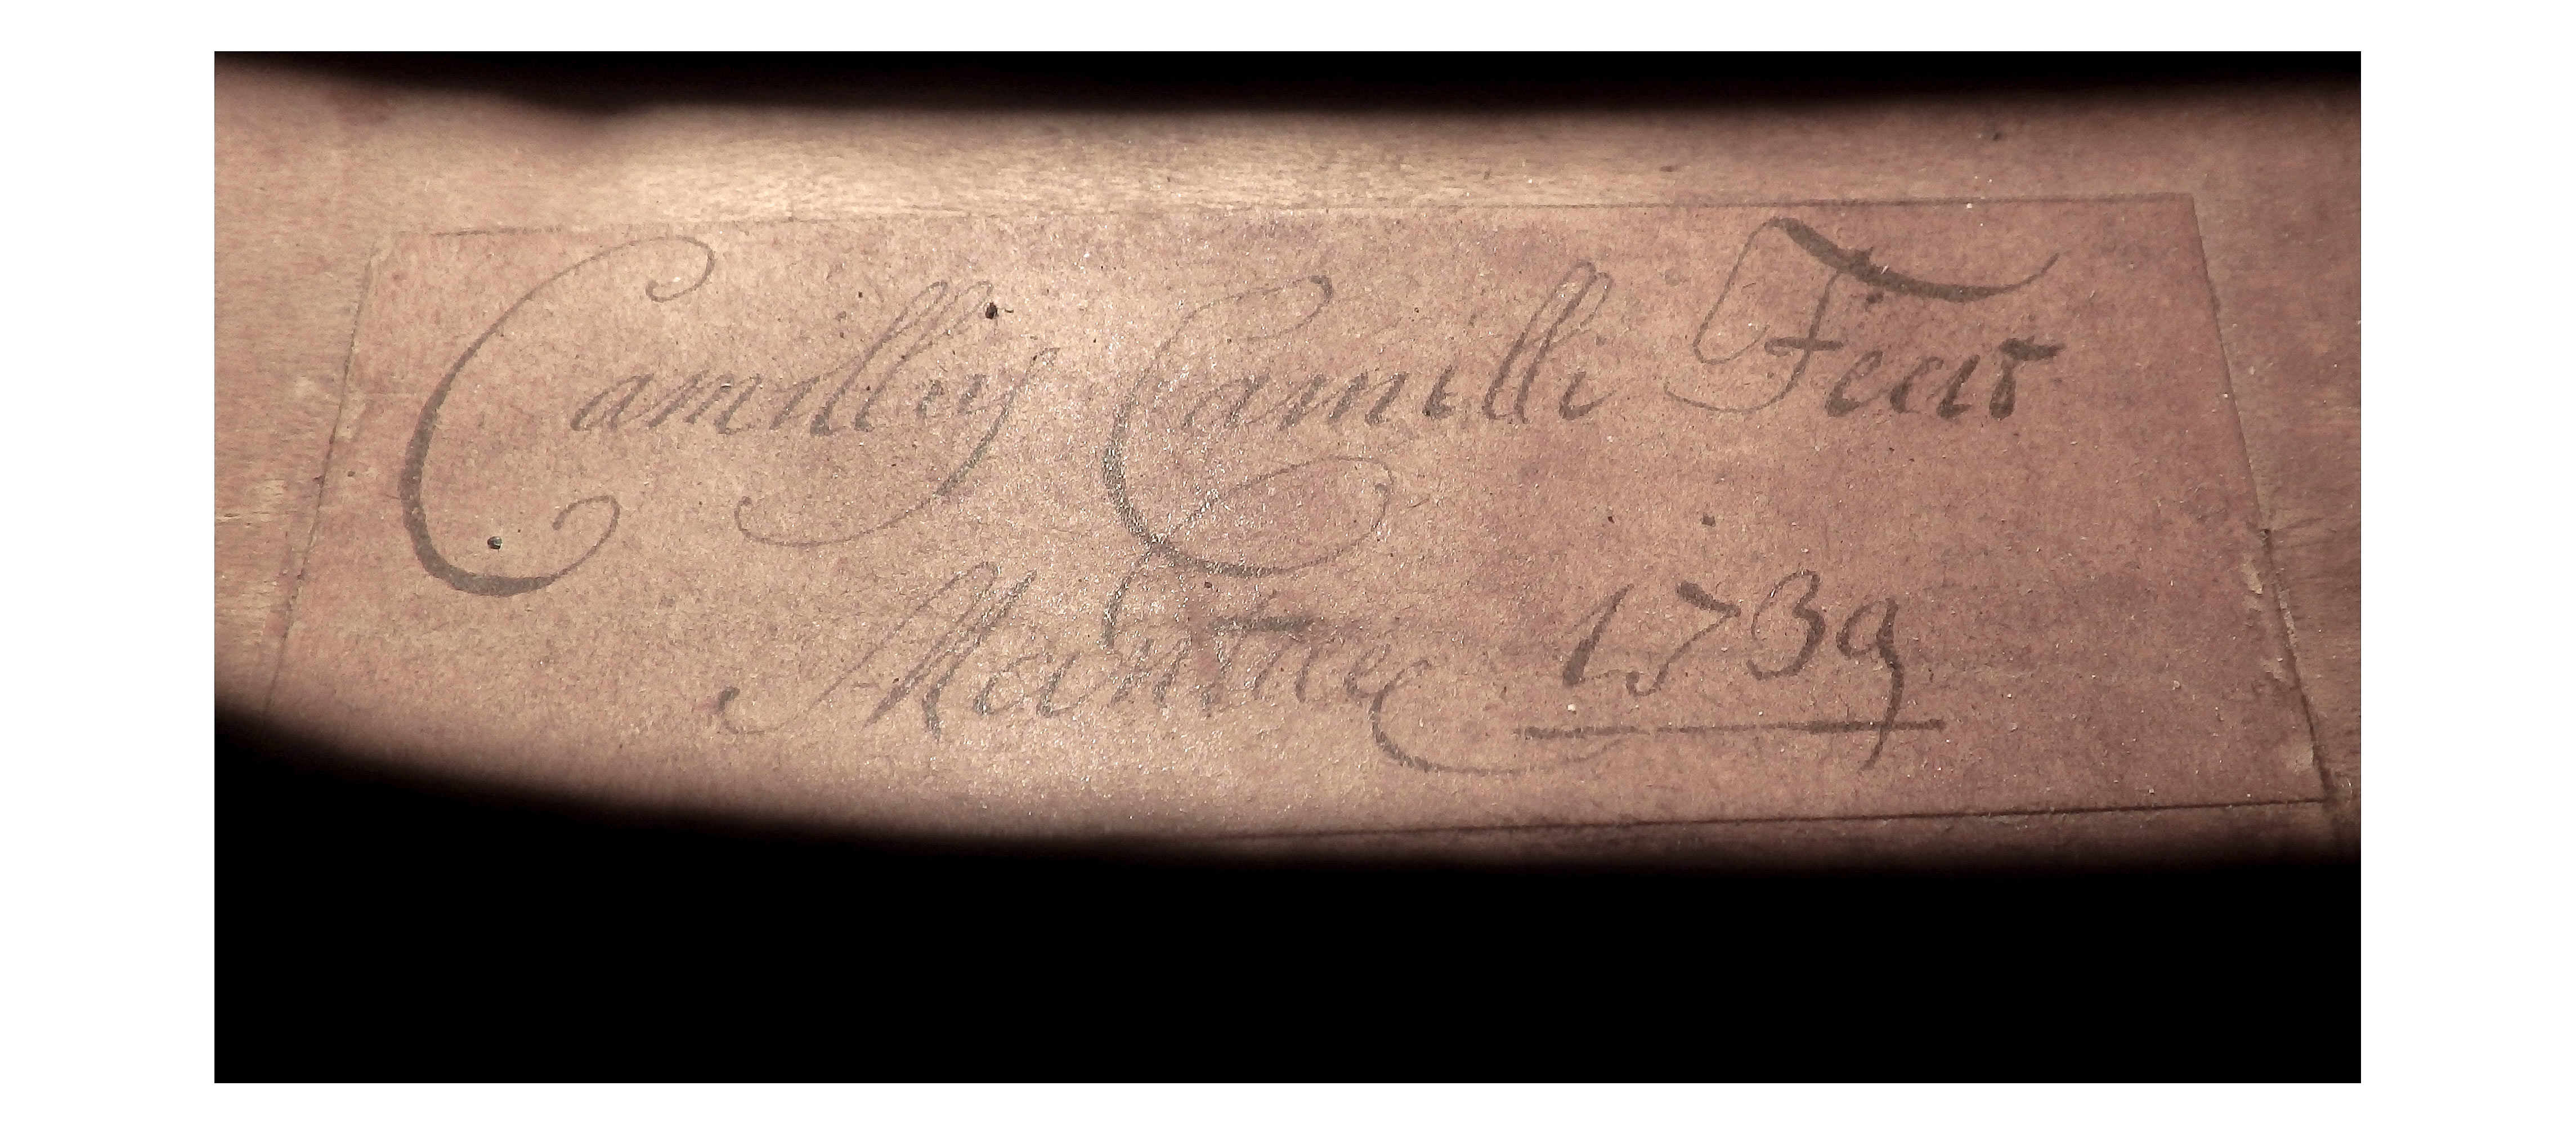 Camillus Camilli Fecit
Mantuae 1739